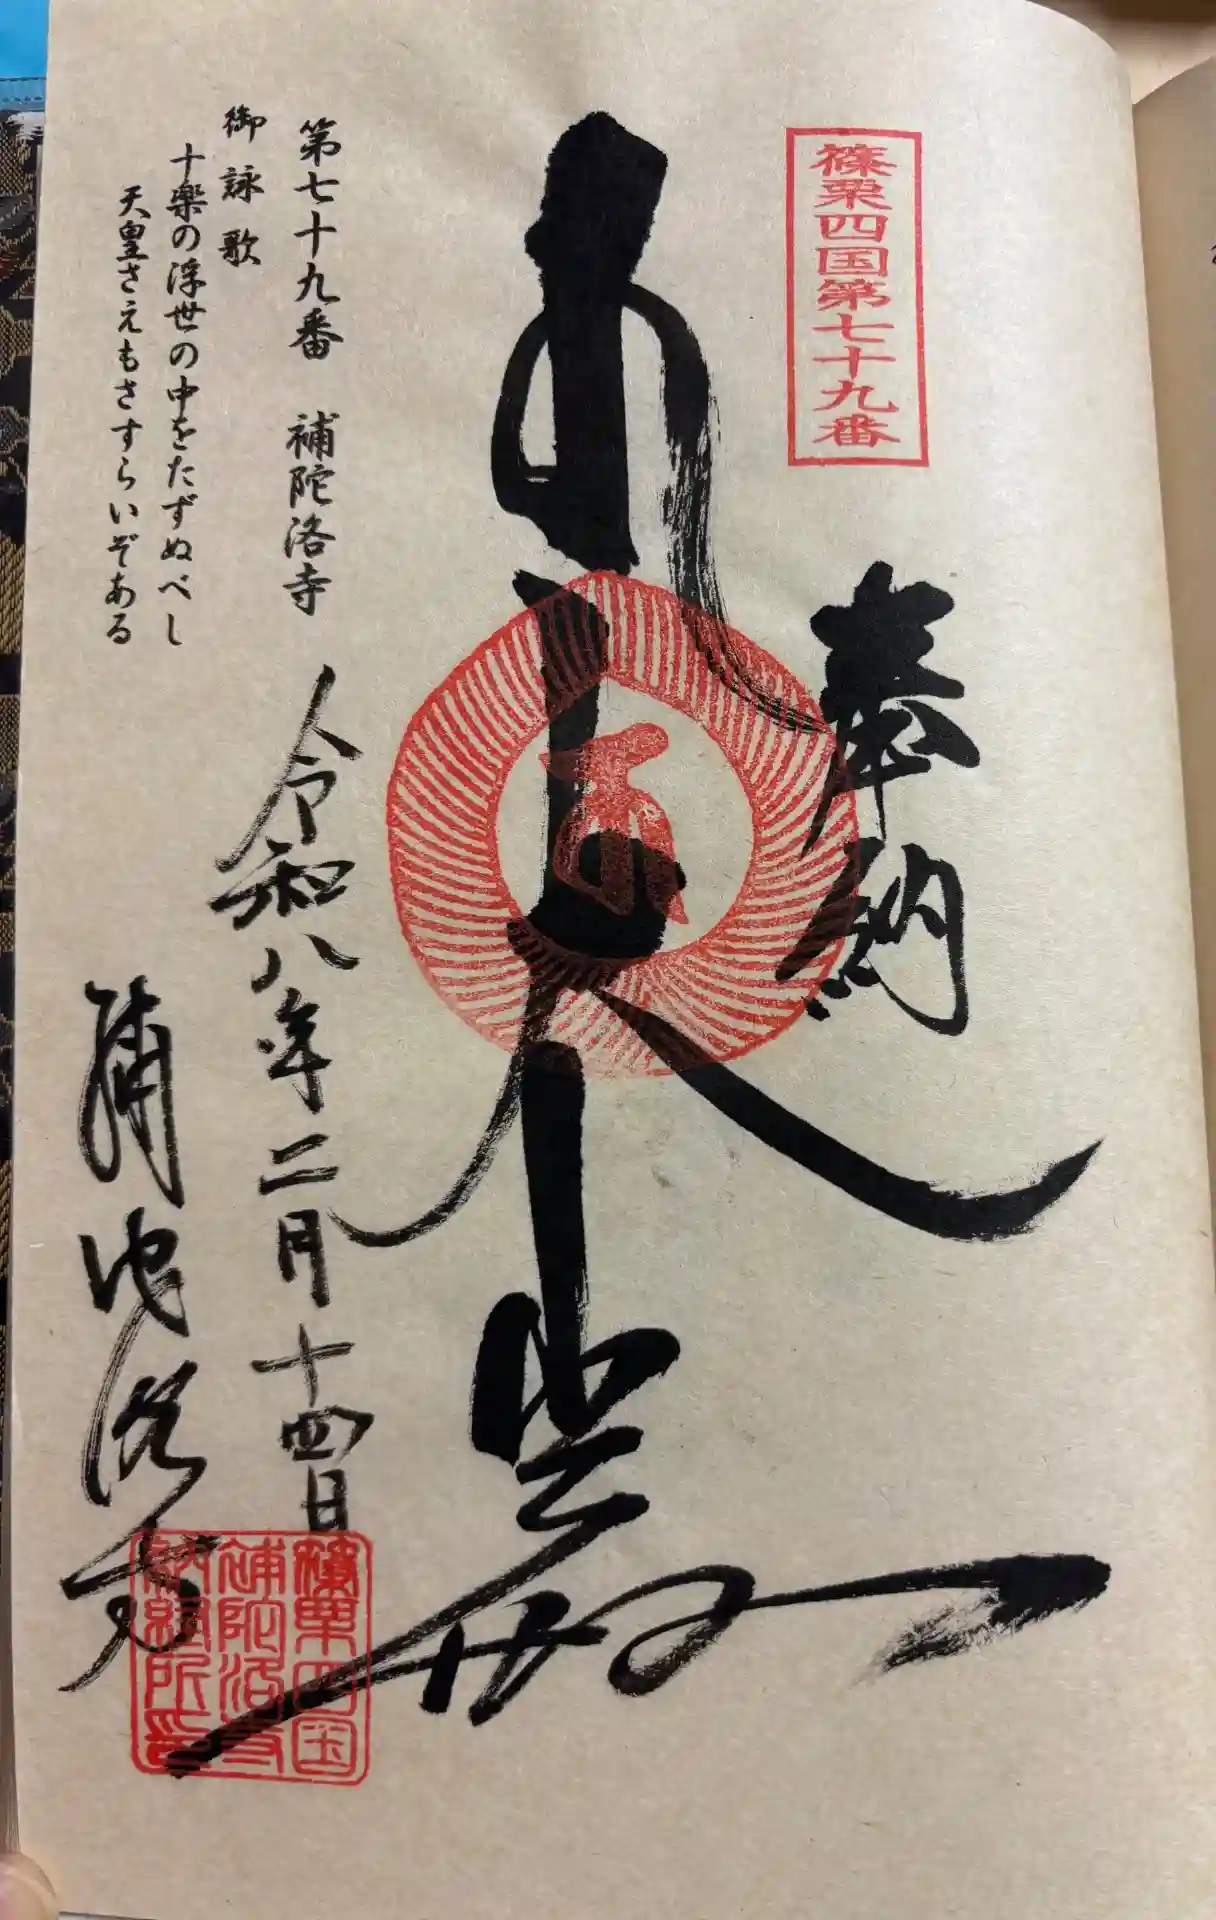 篠栗四国第七十九番
奉納
第七十九番　補陀洛寺
令和八年二月十四日
御詠歌
十楽の浮世の中をたずぬべし
天皇さえもさすらいぞある
補陀洛寺
篠栗四国
補陀洛寺
納経所印